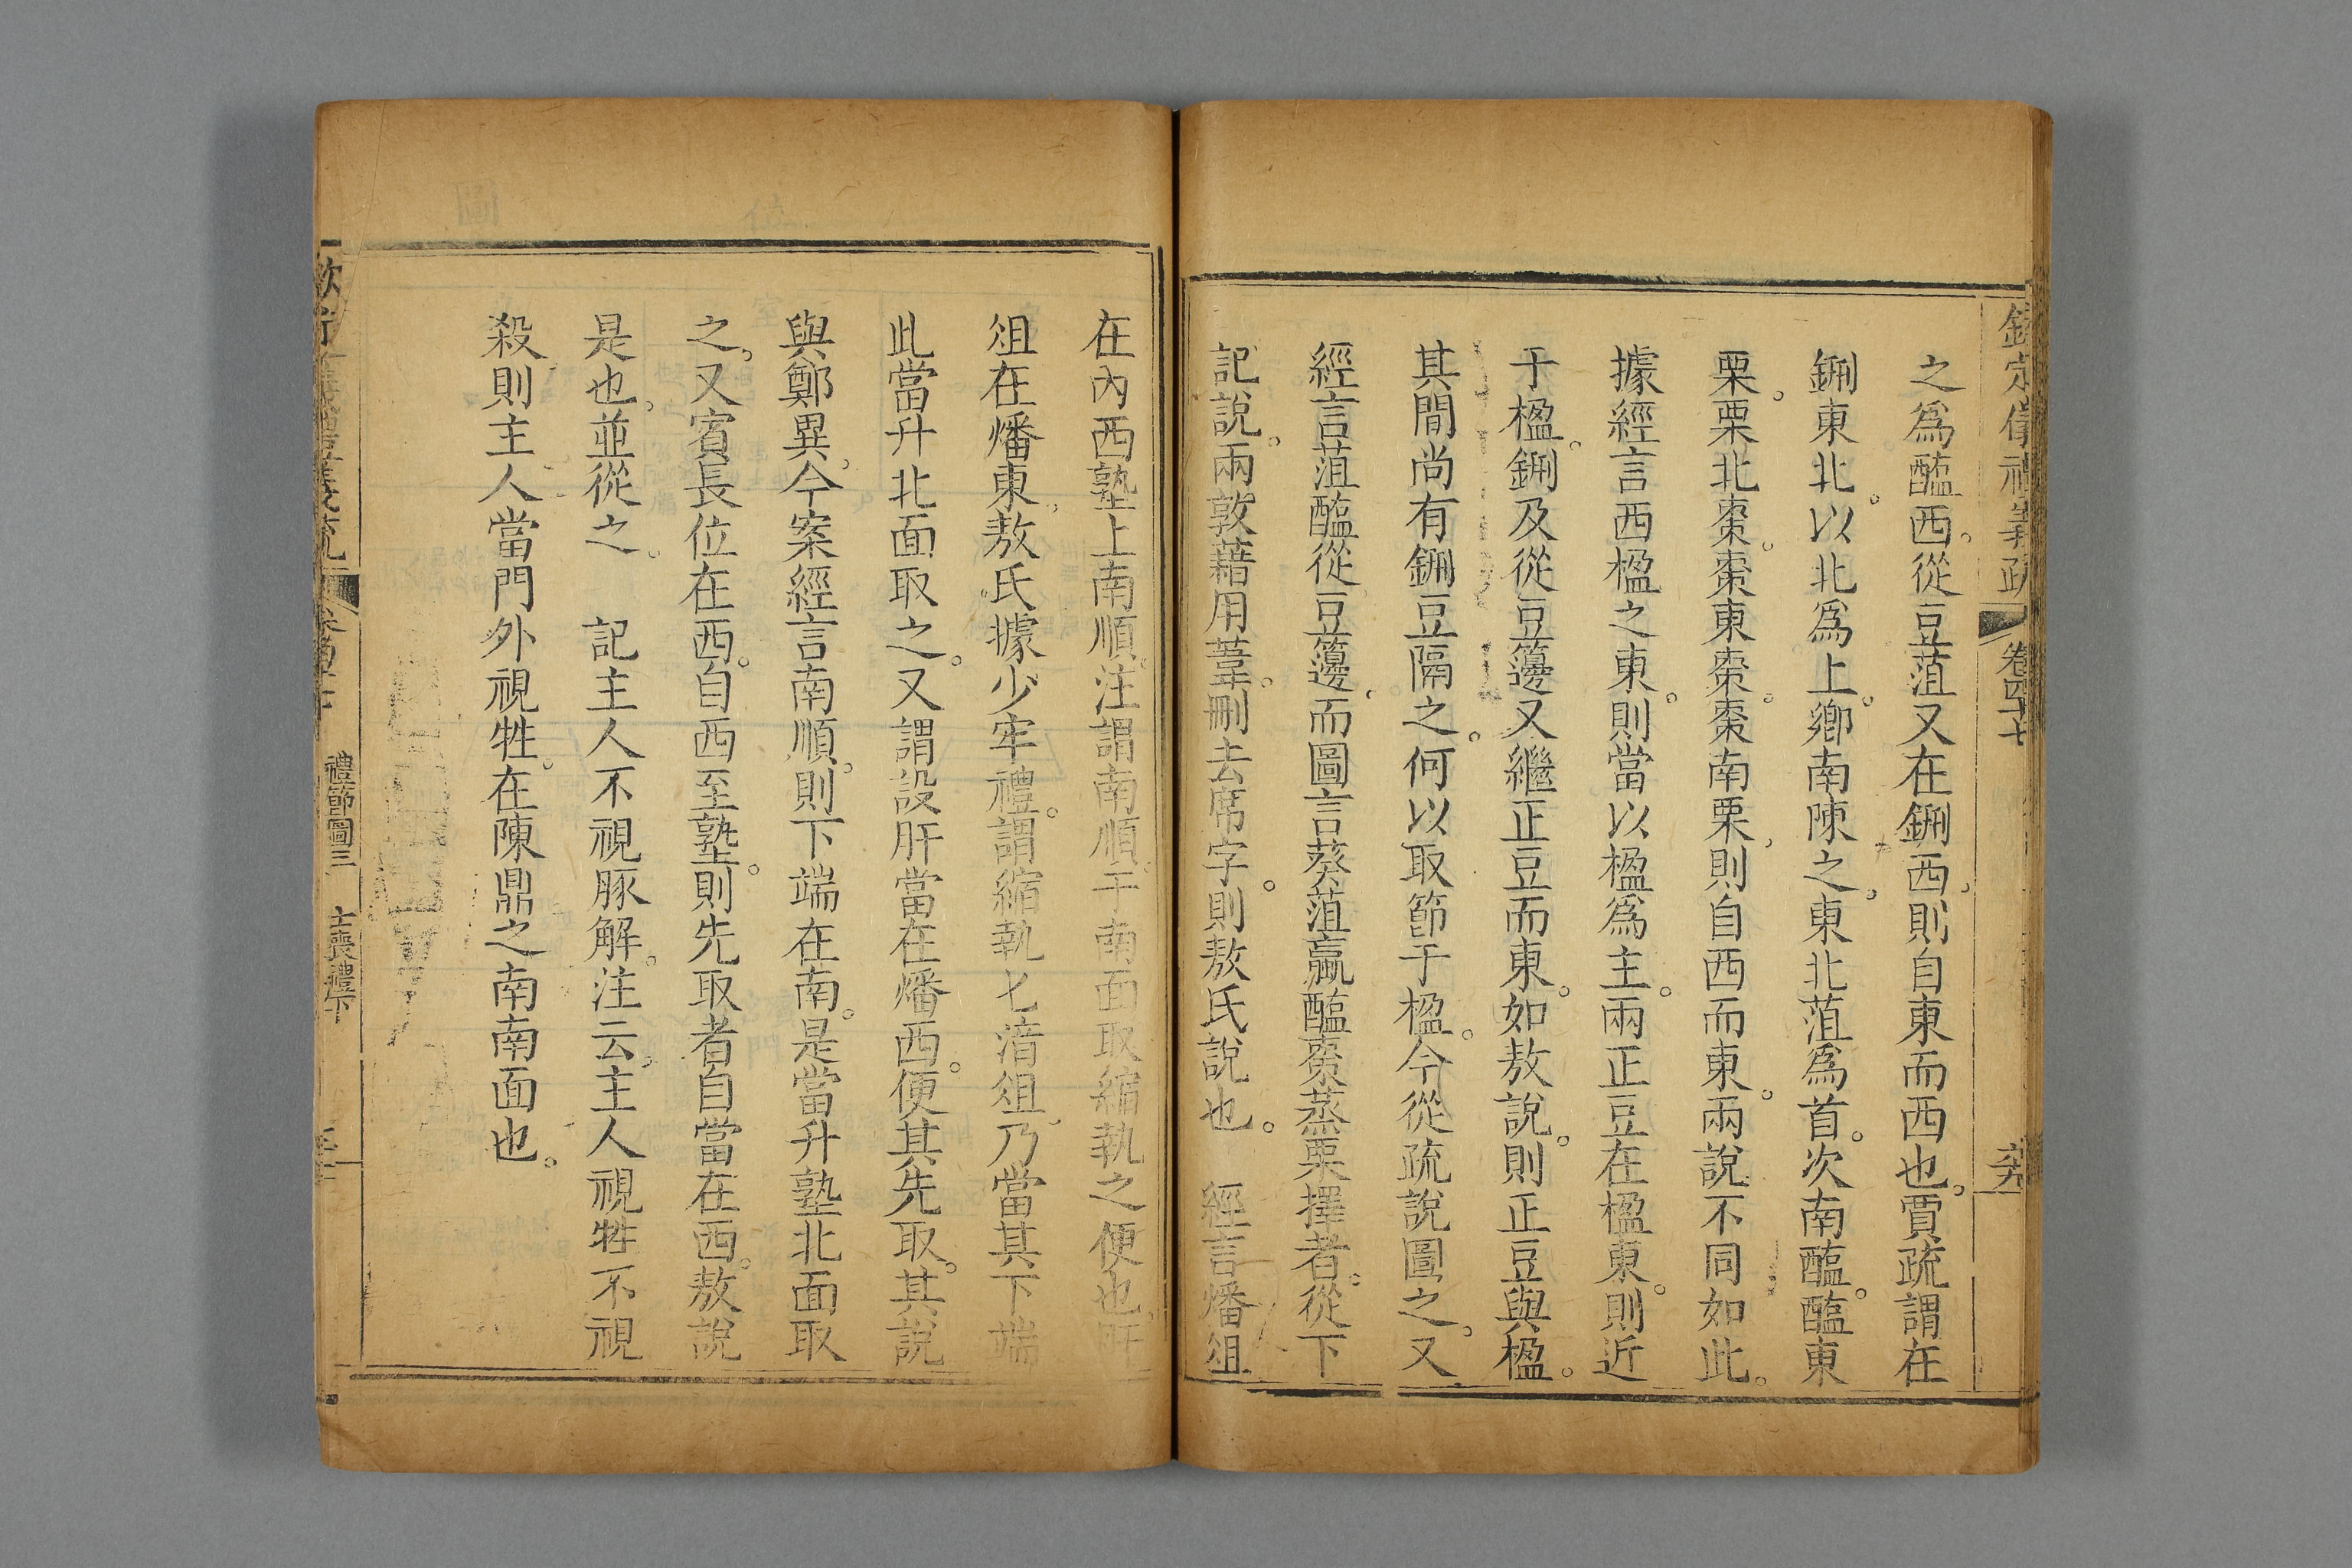 欽定儀禮義疏 卷四十七
之為醓西。從豆菹又在鉶西。則自東而西也。賈疏謂在
鉶東北。以北為上。鄉南陳之。東北菹為首。次南醓。醓東
栗。栗北棗。棗東棗。棗南栗。則自西而東。兩說不同如此。
據經言西楹之東。則當以楹為主。兩正豆在楹東。則近
于楹。鉶及從豆籩又繼正豆而東。如敖說。則正豆與楹。
其間尚有鉶豆隔之。何以取節于楹。今從疏說圖之。又
經言菹醓從豆籩。而圖言葵菹蠃醓棗蒸栗擇者。從下
記說。兩敦藉用葦。刪去席字。則敖氏說也。 經言燔俎
在內西塾上南順。注謂南順。于南面取縮執之便也。肝
俎在燔東。敖氏據少牢禮。謂縮執匕湆俎。乃當其下端
此當升北面取之。又謂設肝當在燔西。便其先取。其說
與鄭異。今案經言南順。則下端在南。是當升塾北面取
之。又賓長位在西。自西至塾。則先取者自當在西。敖說
是也。並從之。 記主人不視豚解。注云。主人視牲不視
殺。則主人當門外視牲。在陳鼎之南南面也。
禮節圖三 士喪禮下